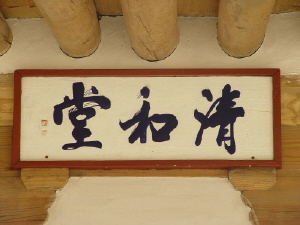 清和堂